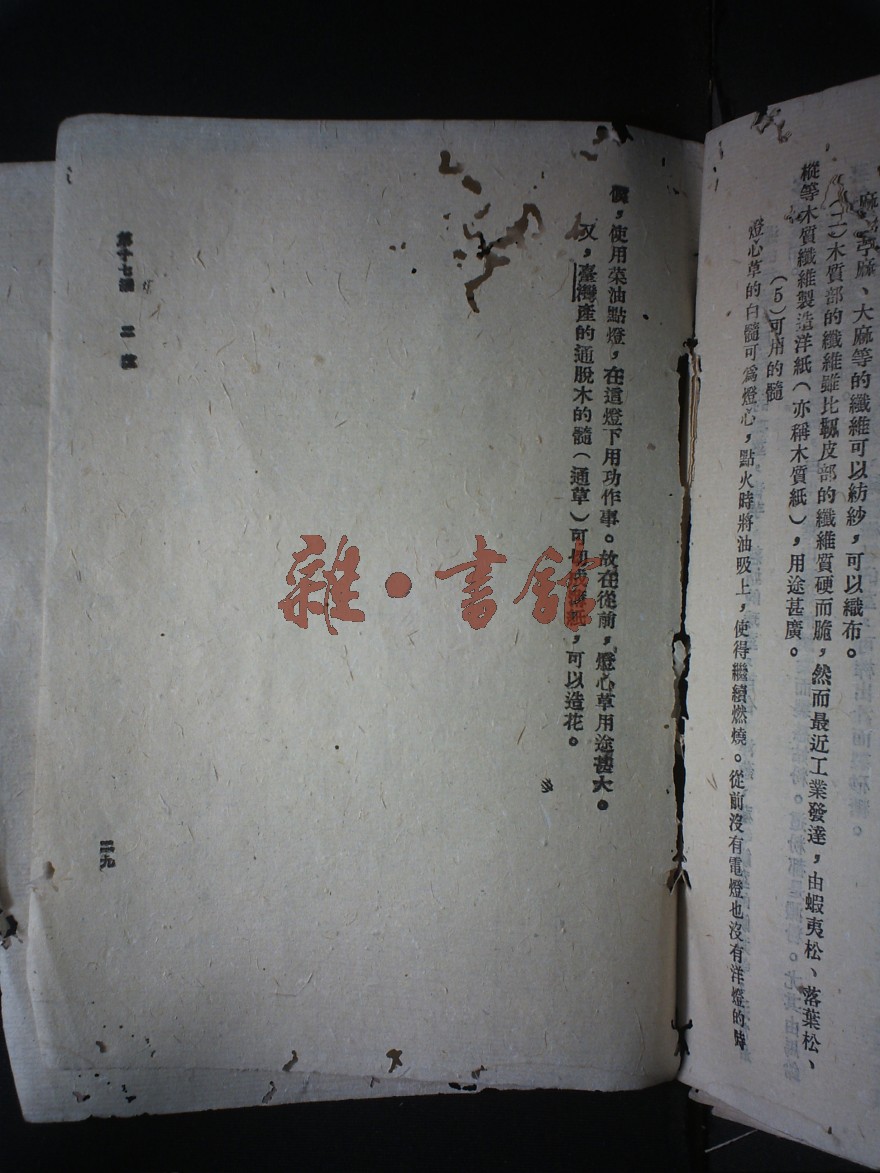 麻、苧麻、大麻等的纖維可以紡紗，可以織布。
（二）木質部的纖維雖比靱皮部的纖維質硬而脆，然而最近工業發達，由蝦夷松、落葉松、
樅等木質纖維製造洋紙（亦稱木質紙），用途甚廣。
（5）可用的髓
燈心草的白髓可爲燈心，點火時將油吸上，使得繼續燃燒。從前沒有電燈也沒有洋燈的時
候，使用菜油點燈，在這燈下用功作事。故在從前，燈心草用途甚大。
又，臺灣產的通脫木的髓（通草）可切成薄紙，可以造花。
第十七課
二九
雜·書館